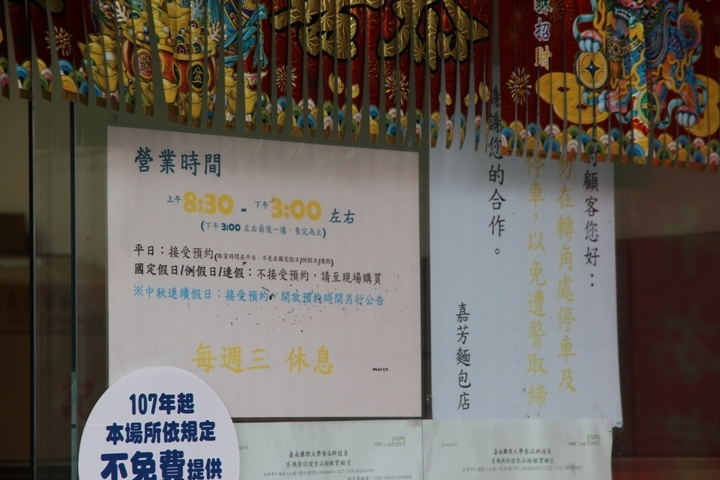 招財
營業時間
上午8:30 - 下午3:00 左右
(下午3:00左右最後一爐,售完為止)
平日：接受預約(取貨時間在平日，不是在國定假日/例假日/連假)
國定假日/例假日/連假：不接受預約，請至現場購買
※中秋連續假日：接受預約，開放預約時間另行公告
每週三 休息
顧客您好：
勿在轉角處停車及
停車，以免遭警取締
謝您的合作。
嘉芳麵包店
107年起
本場所依規定
不免費提供
嘉南藥理大學食品科技系
嘉南藥理大學食品科技系